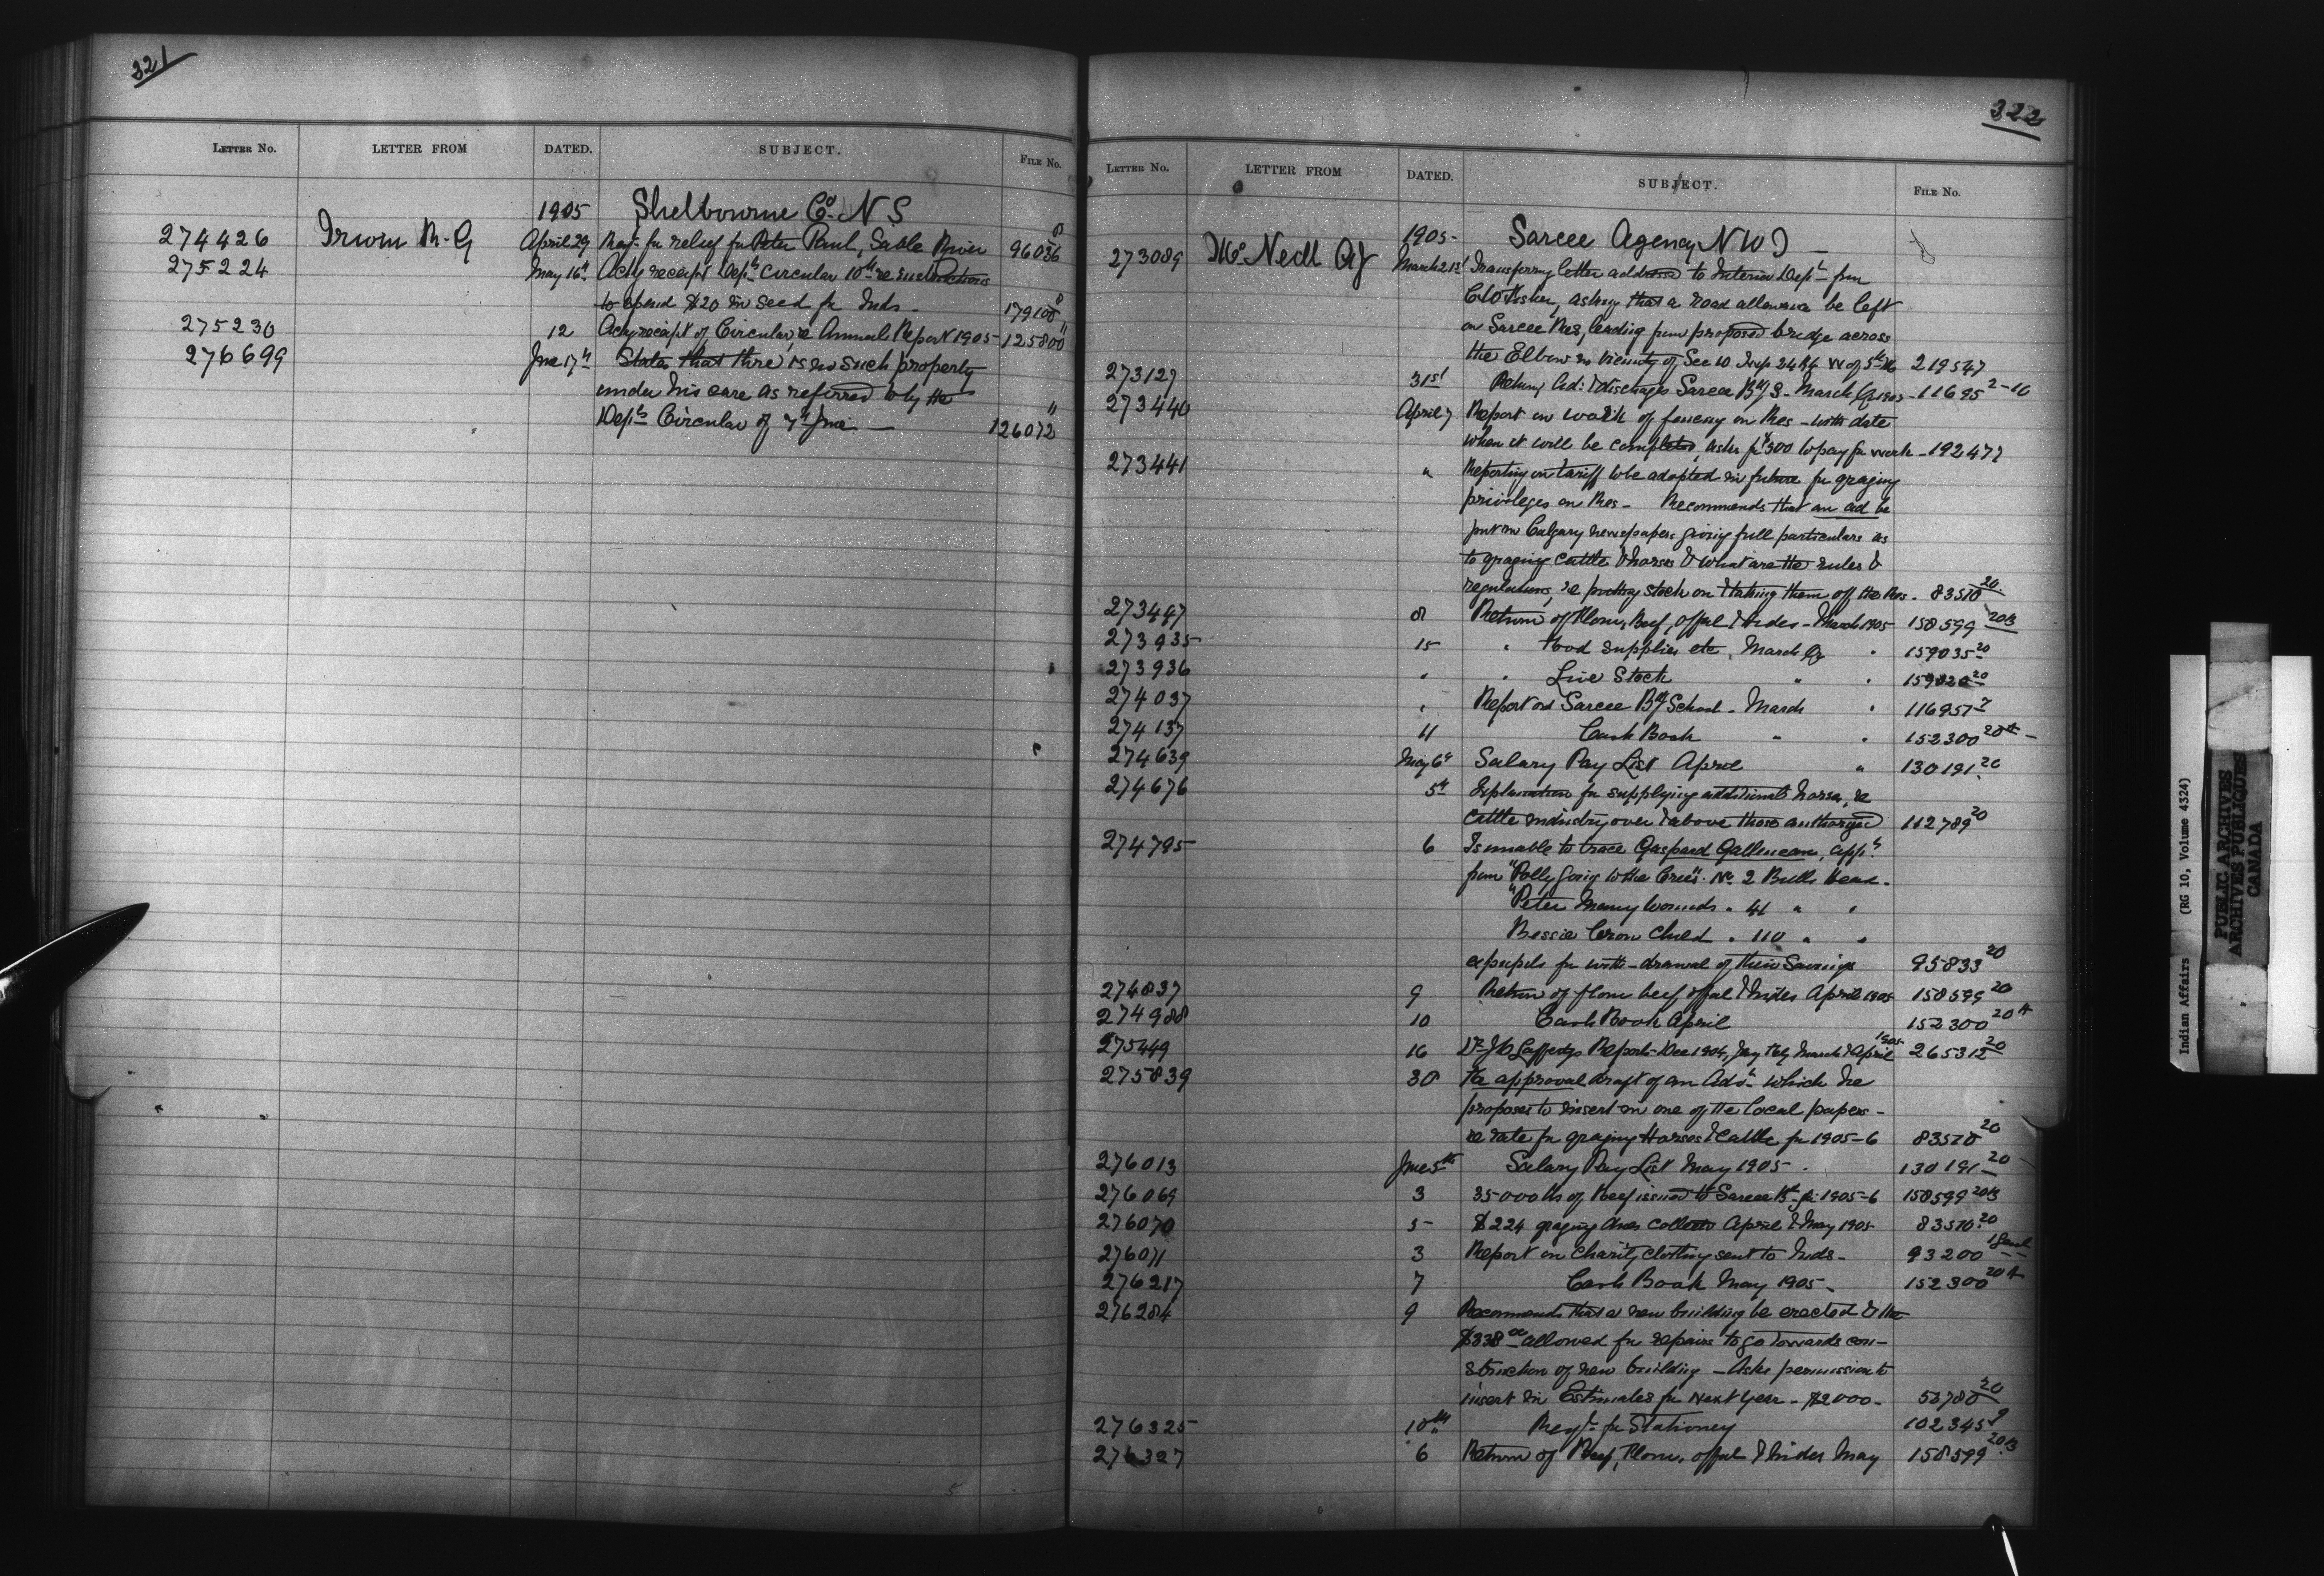 321
LETTER No. LETTER FROM DATED. SUBJECT. FILE No.
1905 Shelbourne Co. N S
274426 Irwin R. G April 29 Reqt. for relief for Peter Paul, Sable River 96036
275224 May 16th Ackg receipt Depts circular 10th re instructions
to spend $20 in seed for Inds - 179108
275230 12 Ackg receipt of Circular, re Annual Report 1905 - 125800
276699 June 17th States that there is no such property
under his care as referred to by the
Depts Circular of 7th June — 126072
322
LETTER No. LETTER FROM DATED. SUBJECT. FILE No.
1905 - Sarcee Agency N W T —
273089 McNeill AJ March 21st Transferring letter addressed to Interior Dept from
Fisher, asking that a road allowance be left
on Sarcee Res, leading from proposed bridge across
the Elbow in vicinity of Sec 10 Twp 24 R4 W of 5th M 219547
273127 31st Return Ad: & discharges Sarcee Bdg S - March Qr 1905 - 11695 2-10
273440 April 7 Report on work of fencing on Res - with date
when it will be completed, asks for $300 to pay for work - 192477
273441 " Reporting on tariff to be adopted in future for grazing
privileges on Res - Recommends that an ad be
put in Calgary newspapers giving full particulars as
to grazing cattle & horses & what are the rules &
regulations, re putting stock on & taking them off the Res. 83570 20
273447 8 Return of Flour, Beef, offal & hides - March 1905 158599 20B
273935 15 " Food supplies etc, March Qr " 159035 20
273936 " " Live Stock " " 20
274037 " Report on Sarcee Bdg School - March " 116957 2
274137 11 Cash Book " " 152300 20A -
274639 May 6th Salary Pay List April " 130191 20
274676 5th Explanation for supplying additional horses, re
cattle industry over & above those authorized 112789 20
274795 6 Is unable to trace Gaspard appn
from "Polly going to the Crees" No 2 Bulls Head -
"Peter Many Wounds " 41 " "
Bessie Crow Child " 110 " "
expupils for with-drawal of their Savings 95833 20
274837 9 Return of flour beef, offal & hides April 1905 158599 20
274988 10 Cash Book April 152300 20A
275449 16 Dr Lafferty's Report - Dec 1904, Jany Feby March & April 1905 265312 20
275839 30 For approval draft of an Advt which he
proposes to insert in one of the local papers -
re rate for grazing Horses & Cattle for 1905-6 83570 20
276013 June 5th Salary Pay List May 1905 . 130191 20
276069 3 35000 lbs of Beef issued to Sarcee 1905-6 158599 20B
276070 5 - $224 grazing dues collected April & May 1905 83570 20
276071 3 Report on Charity clothing sent to Inds - 93200
276217 7 Cash Book May 1905 - 152300 20A
276284 9 Recommends that a new building be erected & the
$338 00 allowed for repairs to go towards con-
struction of new building - Asks permission to
insert in Estimates for Next Year - $2000 - 53780 20
276325 10th Reqt. for Stationery 102345 9
276327 6 Return of Beef, Flour, offal & hides May 158599 20B
Indian Affairs (RG 10, Volume 4324)
PUBLIC ARCHIVES
ARCHIVES PUBLIQUES
CANADA